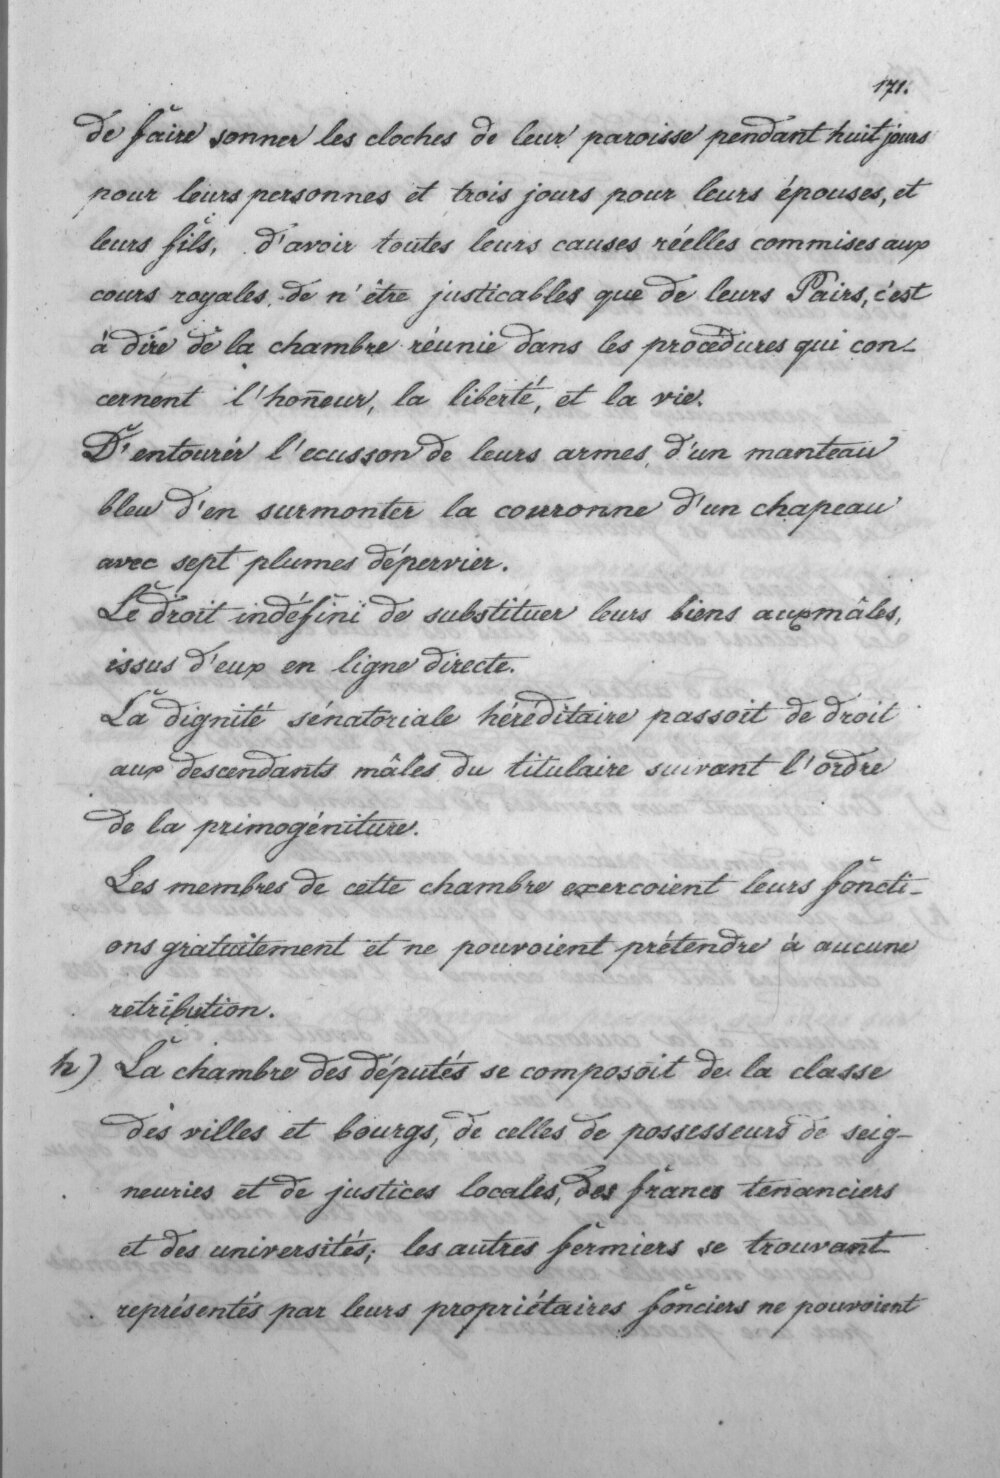 171.
de faire sonner les cloches de leur paroisse pendant huit jours
pour leurs personnes et trois jours pour leurs épouses, et
leurs fils, d'avoir toutes leurs causes réelles commises aux
cours royales, de n'être justicables que de leurs Pairs, c'est
à dire de la chambre réunie dans les procédures qui con-
cernent l'hoñeur, la liberté, et la vie.
D'entourér l'ecusson de leurs armes, d'un manteau
bleu d'en surmonter la couronne d'un chapeau
avec sept plumes d'épervier.
Le droit indéfini de substituer leurs biens aux mâles,
issus d'eux en ligne directe.
La dignité sénatoriale héréditaire passoit de droit
aux descendants mâles du titulaire suivant l'ordre
de la primogéniture.
Les membres de cette chambre exercoient leurs foncti-
ons gratuitement et ne pouvoient prétendre à aucune
retribution.
h) La chambre des députés se composoit de la classe
des villes et bourgs, de celles de possesseurs de seig-
neuries et de justices locales, des francs tenanciers
et des universités; les autres fermiers se trouvant
représentés par leurs propriétaires fonciers ne pouvoient